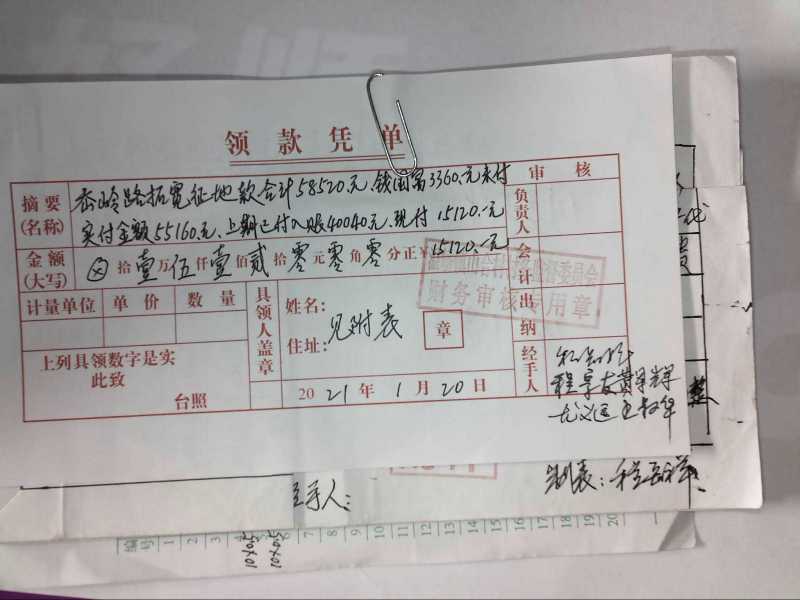 领款凭单
摘要(名称)
岙岭路拓宽征地款合计58520元、钱国富3360.一元未付
实付金额55160元、上期已付入账40040元、现付15120.一元
审核
负责人
金额(大写)
⊗拾壹万伍仟壹佰贰拾零元零角零分正¥15120.一元
会计
计量单位 单价 数量
具领人盖章
姓名:
住址:
见附表
章
出纳
财务审核专用章
上列具领数字是实
此致
台照
2021年1月20日
经手人
主手人:
制表:
编号
1 2 3 4 5 6 7 8 9 10 11 12 13 14 15 16 17 18 19 20